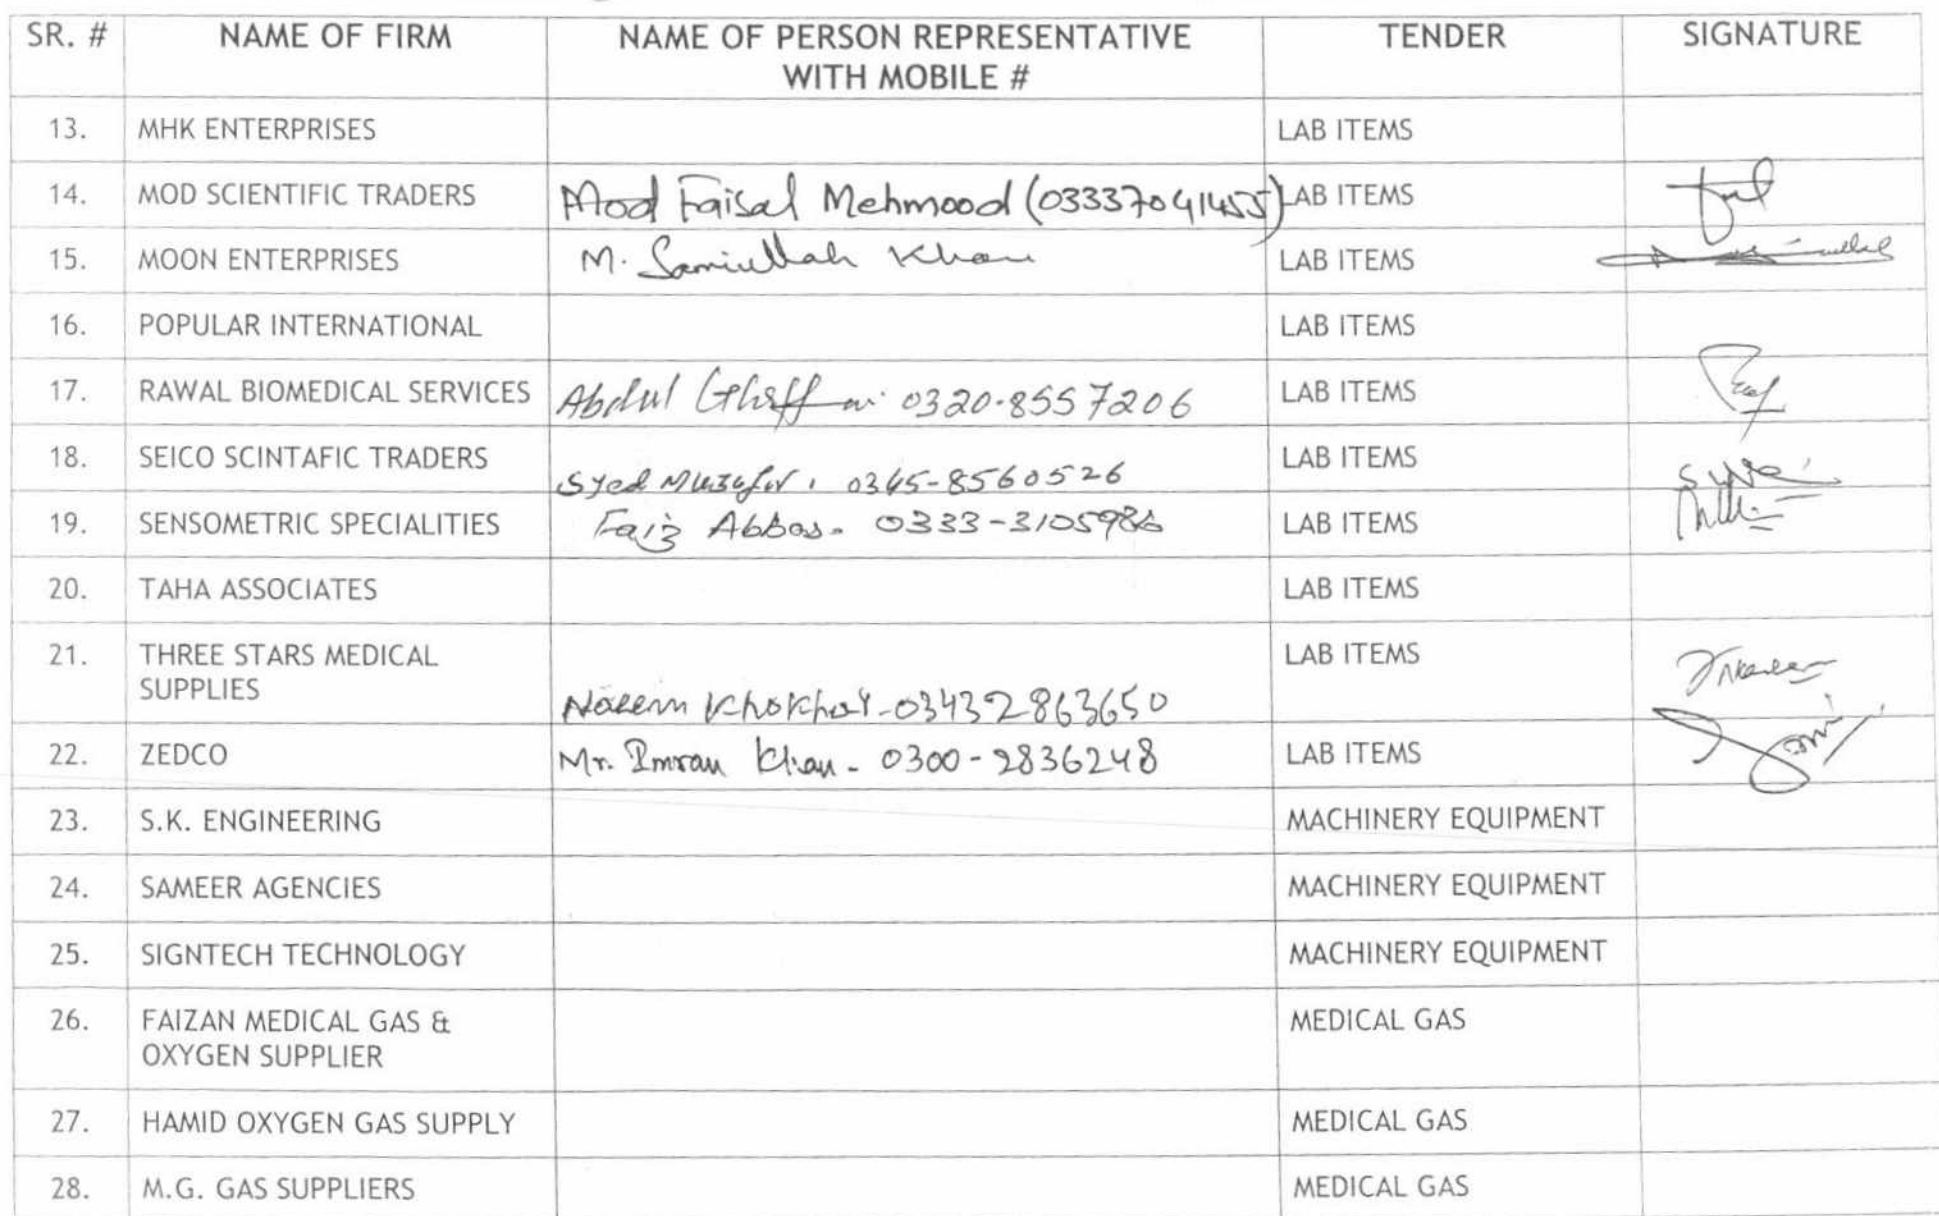 SR. # NAME OF FIRM NAME OF PERSON REPRESENTATIVE TENDER SIGNATURE
WITH MOBILE #
13. MHK ENTERPRISES LAB ITEMS
14. MOD SCIENTIFIC TRADERS Mod Faisal Mehmood (03337041455) LAB ITEMS
15. MOON ENTERPRISES M. Samiullah Khan LAB ITEMS
16. POPULAR INTERNATIONAL LAB ITEMS
17. RAWAL BIOMEDICAL SERVICES Abdul Ghaffar 0320-8557206 LAB ITEMS
18. SEICO SCINTAFIC TRADERS Syed 0345-8560526 LAB ITEMS
19. SENSOMETRIC SPECIALITIES Faiz Abbas - LAB ITEMS
20. TAHA ASSOCIATES LAB ITEMS
21. THREE STARS MEDICAL LAB ITEMS
SUPPLIES Naeem Khokhar - 03432863650
22. ZEDCO Mr. Imran Khan - 0300-2836248 LAB ITEMS
23. S.K. ENGINEERING MACHINERY EQUIPMENT
24. SAMEER AGENCIES MACHINERY EQUIPMENT
25. SIGNTECH TECHNOLOGY MACHINERY EQUIPMENT
26. FAIZAN MEDICAL GAS & MEDICAL GAS
OXYGEN SUPPLIER
27. HAMID OXYGEN GAS SUPPLY MEDICAL GAS
28. M.G. GAS SUPPLIERS MEDICAL GAS